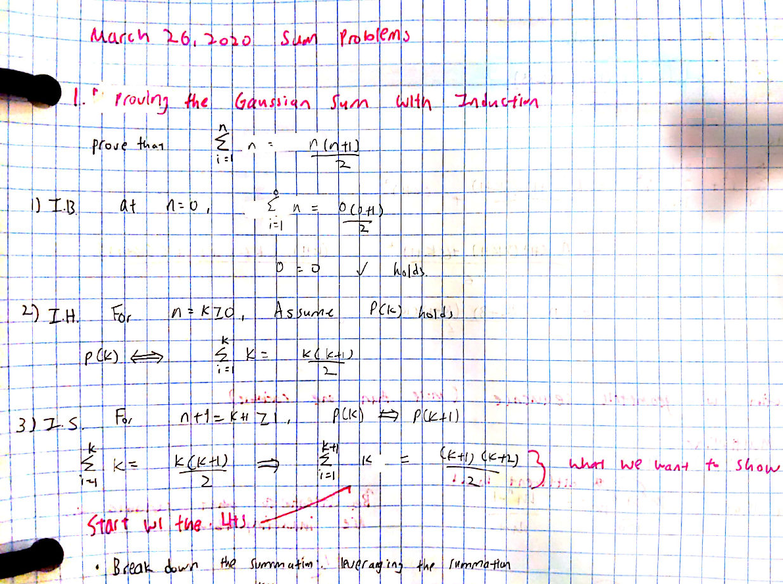 March 26, 2020 Sum Problems
1. Proving the Gaussian Sum with Induction
prove that \sum_{i=1}^{n} n = \frac{n(n+1)}{2}
1) I.B. at n=0, \sum_{i=1}^{0} n = \frac{0(0+1)}{2}
0 = 0 ✓ holds.
2) I.H. For n = k ≥ 0, Assume P(k) holds
P(k) ⟺ \sum_{i=1}^{k} k = \frac{k(k+1)}{2}
3) I.S. For n+1 = k+1 ≥ 1, P(k) ⟺ P(k+1)
\sum_{i=1}^{k} k = \frac{k(k+1)}{2} ⇒ \sum_{i=1}^{k+1} k = \frac{(k+1)(k+2)}{2} } What we want to show
Start w/ the LHS.
• Break down the summation. leveraging the summation